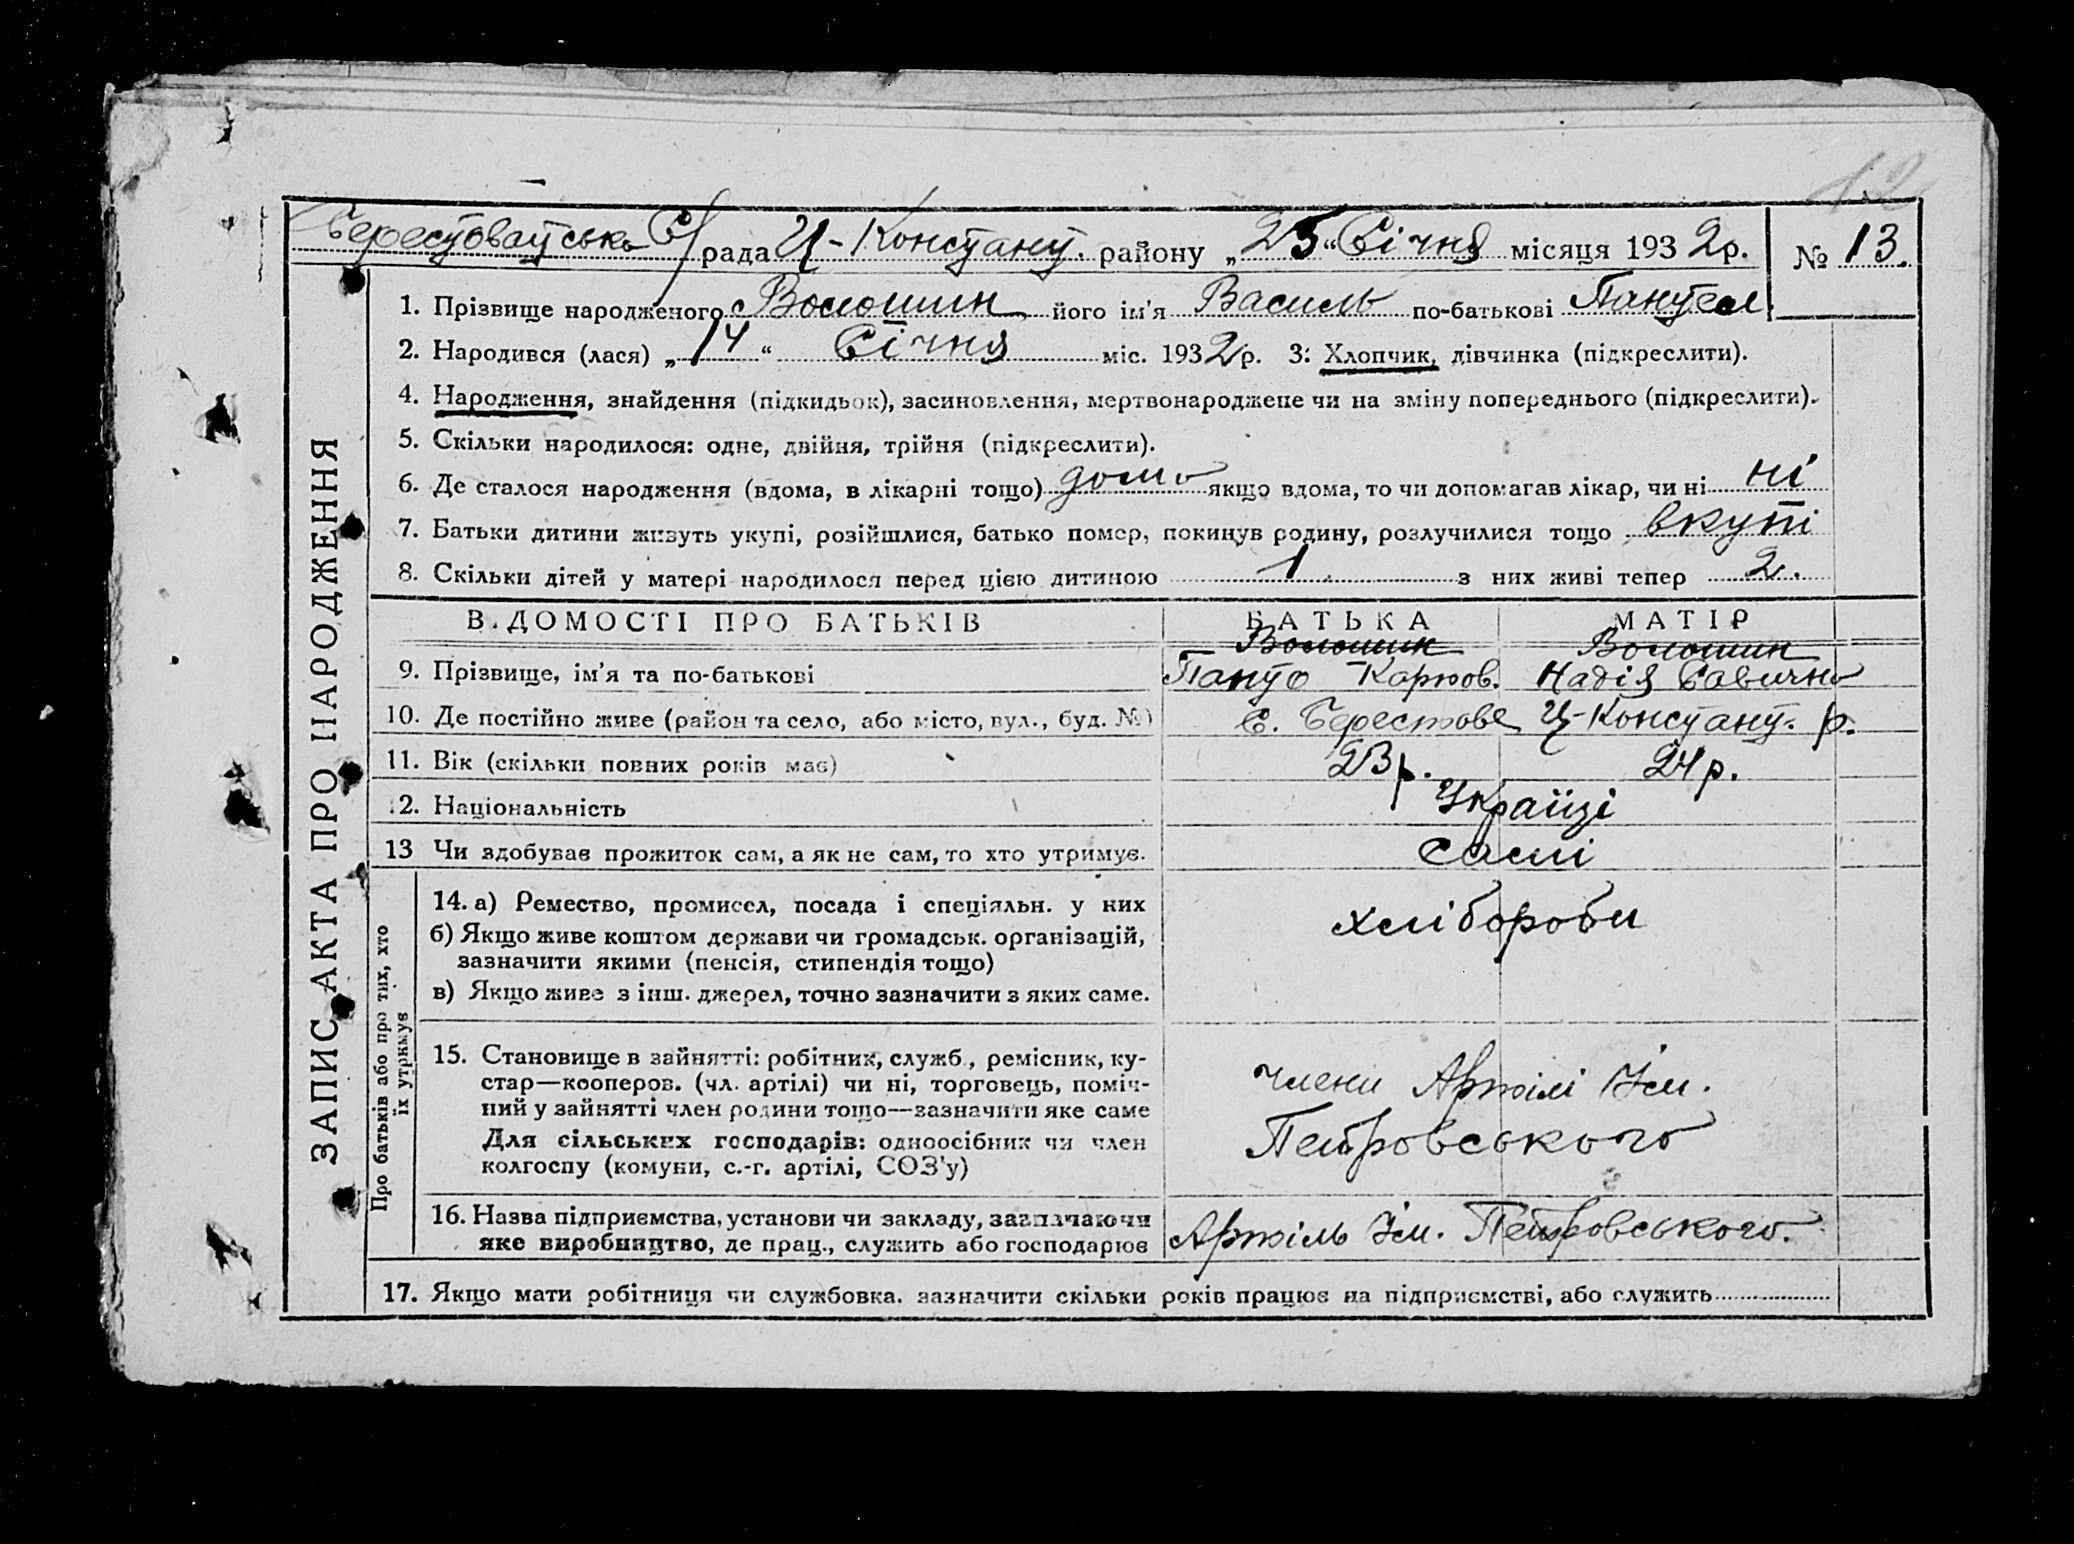 Берестоватська С/рада Ц-Констант. району „25“ Січня місяця 1932р. № 13.
1. Прізвище народженого Волошин його ім'я Василь по-батькові Пантел.
2. Народився (лася) „14“ Січня міс. 1932р. 3: Хлопчик, дівчинка (підкреслити).
4. Народження, знайдення (підкидьок), засиновлення, мертвонароджене чи на зміну попереднього (підкреслити).
5. Скільки народилося: одне, двійня, трійня (підкреслити).
6. Де сталося народження (вдома, в лікарні тощо) дома якщо вдома, то чи допомагав лікар, чи ні ні
7. Батьки дитини живуть укупі, розійшлися, батько помер, покинув родину, розлучилися тощо вкупі
8. Скільки дітей у матері народилося перед цією дитиною 1 з них живі тепер 2.
ЗАПИС АКТА ПРО НАРОДЖЕННЯ
В.ДОМОСТІ ПРО БАТЬКІВ БАТЬКА МАТІР
Волошин Волошин
9. Прізвище, ім'я та по-батькові Надія Савична
10. Де постійно живе (район та село, або місто, вул., буд. №) С. Берестове Ц-Констант. р.
11. Вік (скільки повних років має) 23р. 24р.
12. Національність Українці
13 Чи здобуває прожиток сам, а як не сам, то хто утримує. Самі
Про батьків або про тих, хто
їх утримує
14. а) Ремество, промисел, посада і спеціяльн. у них хлібороби
б) Якщо живе коштом держави чи громадськ. організацій,
зазначити якими (пенсія, стипендія тощо)
в) Якщо живе з інш. джерел, точно зазначити з яких саме.
15. Становище в зайнятті: робітник, служб., ремісник, ку-
стар—кооперов. (чл. артілі) чи ні, торговець, поміч- члени Артілі Ім.
ний у зайнятті член родини тощо—зазначити яке саме
Для сільських господарів: одноосібник чи член Петровського
колгоспу (комуни, с.-г. артілі, СОЗ'у)
16. Назва підприємства, установи чи закладу, зазначаючи Артіль Ім. Петровського.
яке виробництво, де прац., служить або господарює
17. Якщо мати робітниця чи службовка, зазначити скільки років працює на підприємстві, або служить